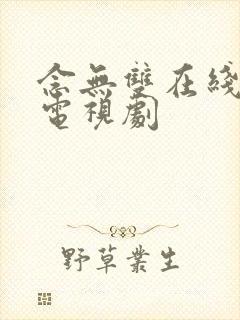 念無雙在綫
電視劇
野草叢生